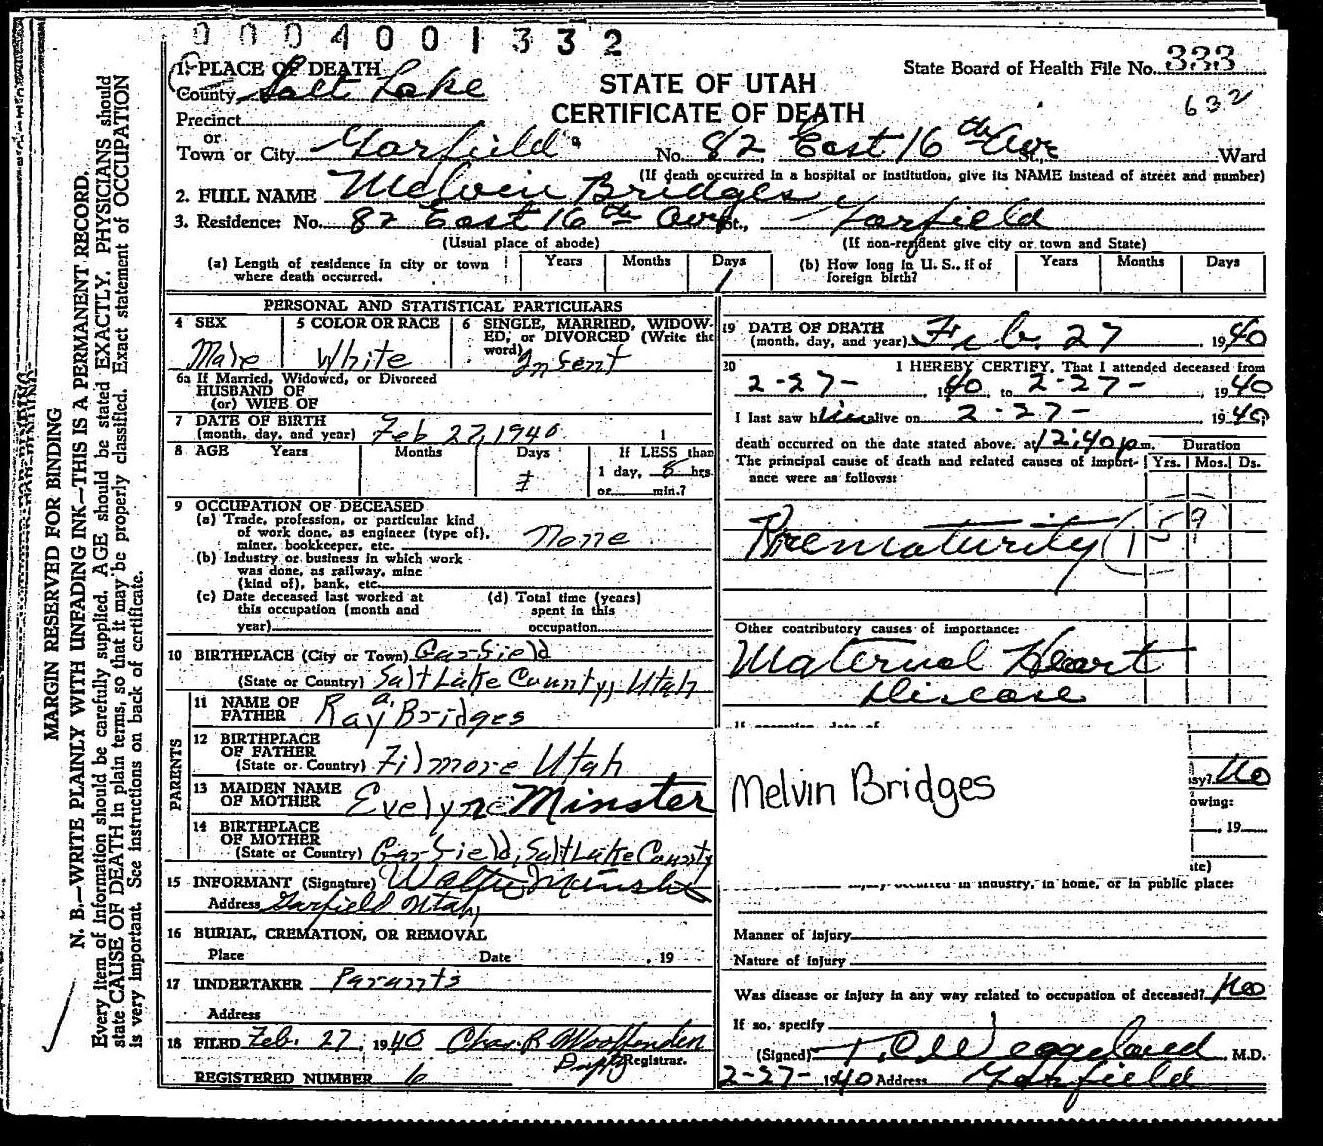 0004001332
1. PLACE OF DEATH
County Salt Lake
STATE OF UTAH
CERTIFICATE OF DEATH
State Board of Health File No. 333
632
Precinct
or
Town or City Garfield No. 82 East 16th Ave St., Ward
(If death occurred in a hospital or institution, give its NAME instead of street and number)
2. FULL NAME Melvin Bridges
3. Residence: No. 82 East 16th Ave St., Garfield
(Usual place of abode) (If non-resident give city or town and State)
(a) Length of residence in city or town where death occurred. Years Months Days 1
(b) How long in U. S., if of foreign birth? Years Months Days
PERSONAL AND STATISTICAL PARTICULARS
4 SEX Male
5 COLOR OR RACE White
6 SINGLE, MARRIED, WIDOWED, or DIVORCED (Write the word) Infant
6a If Married, Widowed, or Divorced
HUSBAND OF
(or) WIFE OF
7 DATE OF BIRTH
(month, day, and year) Feb 27, 1940
8 AGE Years Months Days If LESS than
1 day, 6 hrs
or min.?
9 OCCUPATION OF DECEASED
(a) Trade, profession, or particular kind
of work done, as engineer (type of),
miner, bookkeeper, etc. None
(b) Industry or business in which work
was done, as railway, mine
(kind of), bank, etc.
(c) Date deceased last worked at
this occupation (month and
year)
(d) Total time (years)
spent in this
occupation
10 BIRTHPLACE (City or Town) Garfield
(State or Country) Salt Lake County, Utah
PARENTS
11 NAME OF
FATHER Ray A. Bridges
12 BIRTHPLACE
OF FATHER
(State or Country) Filmore Utah
13 MAIDEN NAME
OF MOTHER Evelyne Minster
14 BIRTHPLACE
OF MOTHER
(State or Country) Garfield, Salt Lake County
15 INFORMANT (Signature)
Address Garfield Utah,
16 BURIAL, CREMATION, OR REMOVAL
Place Date , 19
17 UNDERTAKER Parants
Address
18 FILED Feb. 27, 1940 Chas. R Wooffenden
Dpty Registrar.
REGISTERED NUMBER 6
19 DATE OF DEATH
(month, day, and year) Feb. 27, 1940
20 I HEREBY CERTIFY, That I attended deceased from
2-27-, 1940 to 2-27-, 1940
I last saw him alive on 2-27- 1940;
death occurred on the date stated above, at 12:40 p m. Duration
The principal cause of death and related causes of importance were as follows: Yrs. Mos. Ds.
Prematurity 159
Other contributory causes of importance:
Maternal Heart
Disease
Melvin Bridges
sy? No
owing:
, 19
te)
injury occurred in industry, in home, or in public place:
Manner of injury
Nature of injury
Was disease or injury in any way related to occupation of deceased? No
If so, specify
(Signed) M.D.
2-27-1940 Address Garfield
MARGIN RESERVED FOR BINDING
N. B.—WRITE PLAINLY WITH UNFADING INK—THIS IS A PERMANENT RECORD.
Every item of information should be carefully supplied. AGE should be stated EXACTLY. PHYSICIANS should
state CAUSE OF DEATH in plain terms, so that it may be properly classified. Exact statement of OCCUPATION
is very important. See instructions on back of certificate.